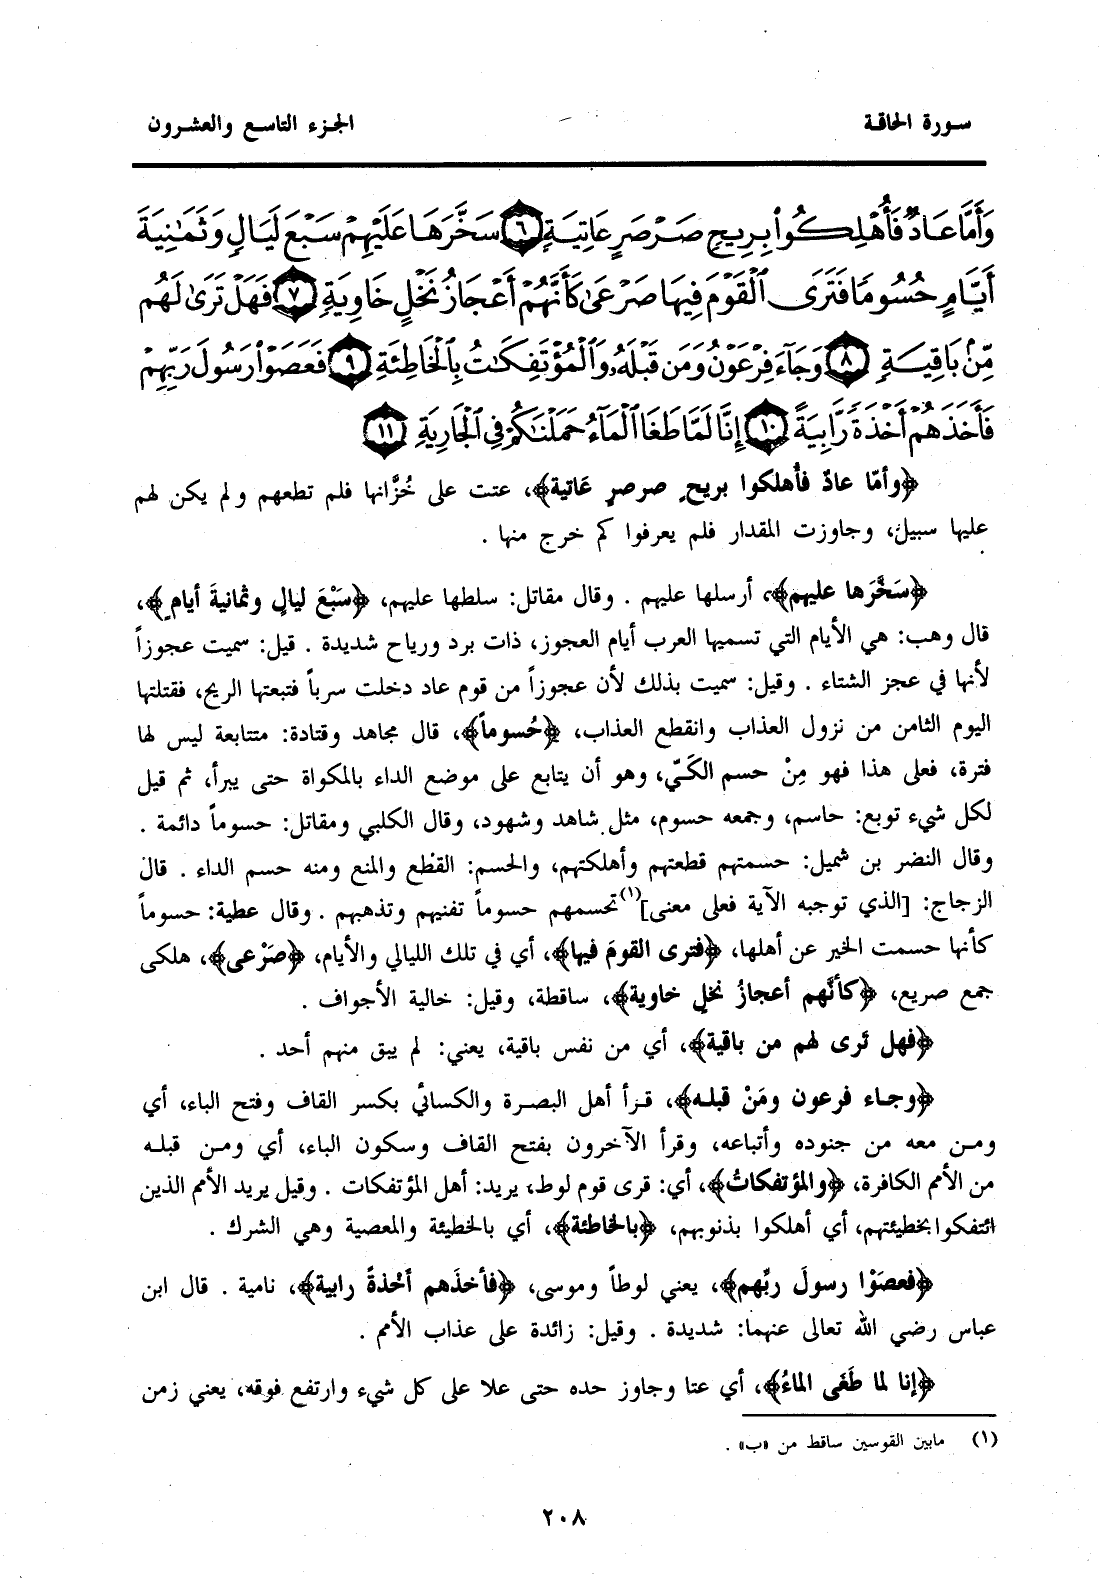 سورة الحاقة
الجزء التاسع والعشرون
وَأَمَّا عَادٌ فَأُهْلِكُوا۟ بِرِيحٍ صَرْصَرٍ عَاتِيَةٍ ٦ سَخَّرَهَا عَلَيْهِمْ سَبْعَ لَيَالٍ وَثَمَٰنِيَةَ
أَيَّامٍ حُسُومًا فَتَرَى ٱلْقَوْمَ فِيهَا صَرْعَىٰ كَأَنَّهُمْ أَعْجَازُ نَخْلٍ خَاوِيَةٍ ٧ فَهَلْ تَرَىٰ لَهُم
مِّنۢ بَاقِيَةٍ ٨ وَجَآءَ فِرْعَوْنُ وَمَن قَبْلَهُۥ وَٱلْمُؤْتَفِكَٰتُ بِٱلْخَاطِئَةِ ٩ فَعَصَوْا۟ رَسُولَ رَبِّهِمْ
فَأَخَذَهُمْ أَخْذَةً رَّابِيَةً ١٠ إِنَّا لَمَّا طَغَا ٱلْمَآءُ حَمَلْنَٰكُمْ فِى ٱلْجَارِيَةِ ١١
﴿وأمّا عادٌ فأُهلكوا بريحٍ صرصرٍ عَاتية﴾، عتت على خُزَّانها فلم تطعهم ولم يكن لهم
عليها سبيل، وجاوزت المقدار فلم يعرفوا كم خرج منها .
﴿سَخَّرَها عليهم﴾، أرسلها عليهم . وقال مقاتل: سلطها عليهم، ﴿سَبْعَ ليالٍ وثمانيةَ أيامٍ﴾،
قال وهب: هي الأيام التي تسميها العرب أيام العجوز، ذات برد ورياح شديدة . قيل: سميت عجوزاً
لأنها في عجز الشتاء . وقيل: سميت بذلك لأن عجوزاً من قوم عاد دخلت سرباً فتبعتها الريح، فقتلتها
اليوم الثامن من نزول العذاب وانقطع العذاب، ﴿حُسوماً﴾، قال مجاهد وقتادة: متتابعة ليس لها
فترة، فعلى هذا فهو مِنْ حسم الكَيّ، وهو أن يتابع على موضع الداء بالمكواة حتى يبرأ، ثم قيل
لكل شيء توبع: حاسم، وجمعه حسوم، مثل شاهد وشهود، وقال الكلبي ومقاتل: حسوماً دائمة .
وقال النضر بن شميل: حسمتهم قطعتهم وأهلكتهم، والحسم: القطْع والمنع ومنه حسم الداء . قال
الزجاج: [الذي توجبه الآية فعلى معنى](١) تحسمهم حسوماً تفنيهم وتذهبهم . وقال عطية: حسوماً
كأنها حسمت الخير عن أهلها، ﴿فترى القومَ فيها﴾، أي في تلك الليالي والأيام، ﴿صَرْعى﴾، هلكى
جمع صريع، ﴿كأنّهم أعجازُ نخلٍ خاوية﴾، ساقطة، وقيل: خالية الأجواف .
﴿فهل تَرى لهم من باقية﴾، أي من نفس باقية، يعني: لم يبق منهم أحد .
﴿وجاء فرعون ومَنْ قبله﴾، قرأ أهل البصرة والكسائي بكسر القاف وفتح الباء، أي
ومن معه من جنوده وأتباعه، وقرأ الآخرون بفتح القاف وسكون الباء، أي ومن قبله
من الأمم الكافرة، ﴿والمؤتفكاتُ﴾، أي: قرى قوم لوط، يريد: أهل المؤتفكات . وقيل يريد الأمم الذين
ائتفكوا بخطيئتهم، أي أهلكوا بذنوبهم، ﴿بالخاطئة﴾، أي بالخطيئة والمعصية وهي الشرك .
﴿فعصَوْا رسولَ ربِّهم﴾، يعني لوطاً وموسى، ﴿فأخذَهم أخْذةً رابية﴾، نامية . قال ابن
عباس رضي الله تعالى عنهما: شديدة . وقيل: زائدة على عذاب الأمم .
﴿إنا لما طَغَى الماءُ﴾، أي عتا وجاوز حده حتى علا على كل شيء وارتفع فوقه، يعني زمن
(١) مابين القوسين ساقط من «ب» .
٢٠٨